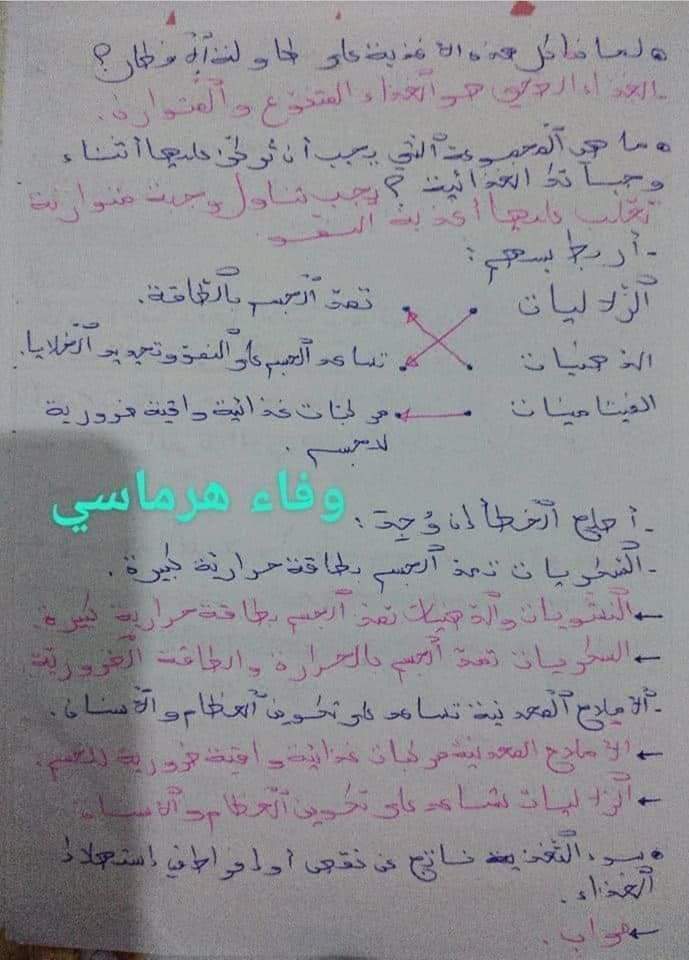 • لماذا كل هذه الأغذية على طاولة الإفطار؟
- الغذاء الصحي هو الغذاء المتنوع والمتوازن.
• ما هي المجموعة التي يجب أن تركز عليها أثناء
وجباتك الغذائية؟ يجب تناول وجبة متوازنة
تغلب عليها أغذية النمو
- أربط بسهم:
الزلاليات • • تمد الجسم بالطاقة.
الدهنيات • • تساعد الجسم على النمو وتجديد الخلايا.
الفيتامينات • • مركبات غذائية واقية ضرورية
للجسم.
وفاء هرماسي
- أصلح الخطأ إن وجد:
- السكريات تمد الجسم بطاقة حرارية كبيرة.
← النشويات والدهنيات تمد الجسم بطاقة حرارية كبيرة.
← السكريات تمد الجسم بالحرارة والطاقة الضرورية.
- الأملاح المعدنية تساعد على تكوين العظام والأسنان.
← الأملاح المعدنية مركبات غذائية واقية ضرورية للجسم.
← الزلاليات تساعد على تكوين العظام والأسنان
• سوء التغذية ناتج عن نقص أو إفراط في استهلاك
الغذاء.
← صواب.